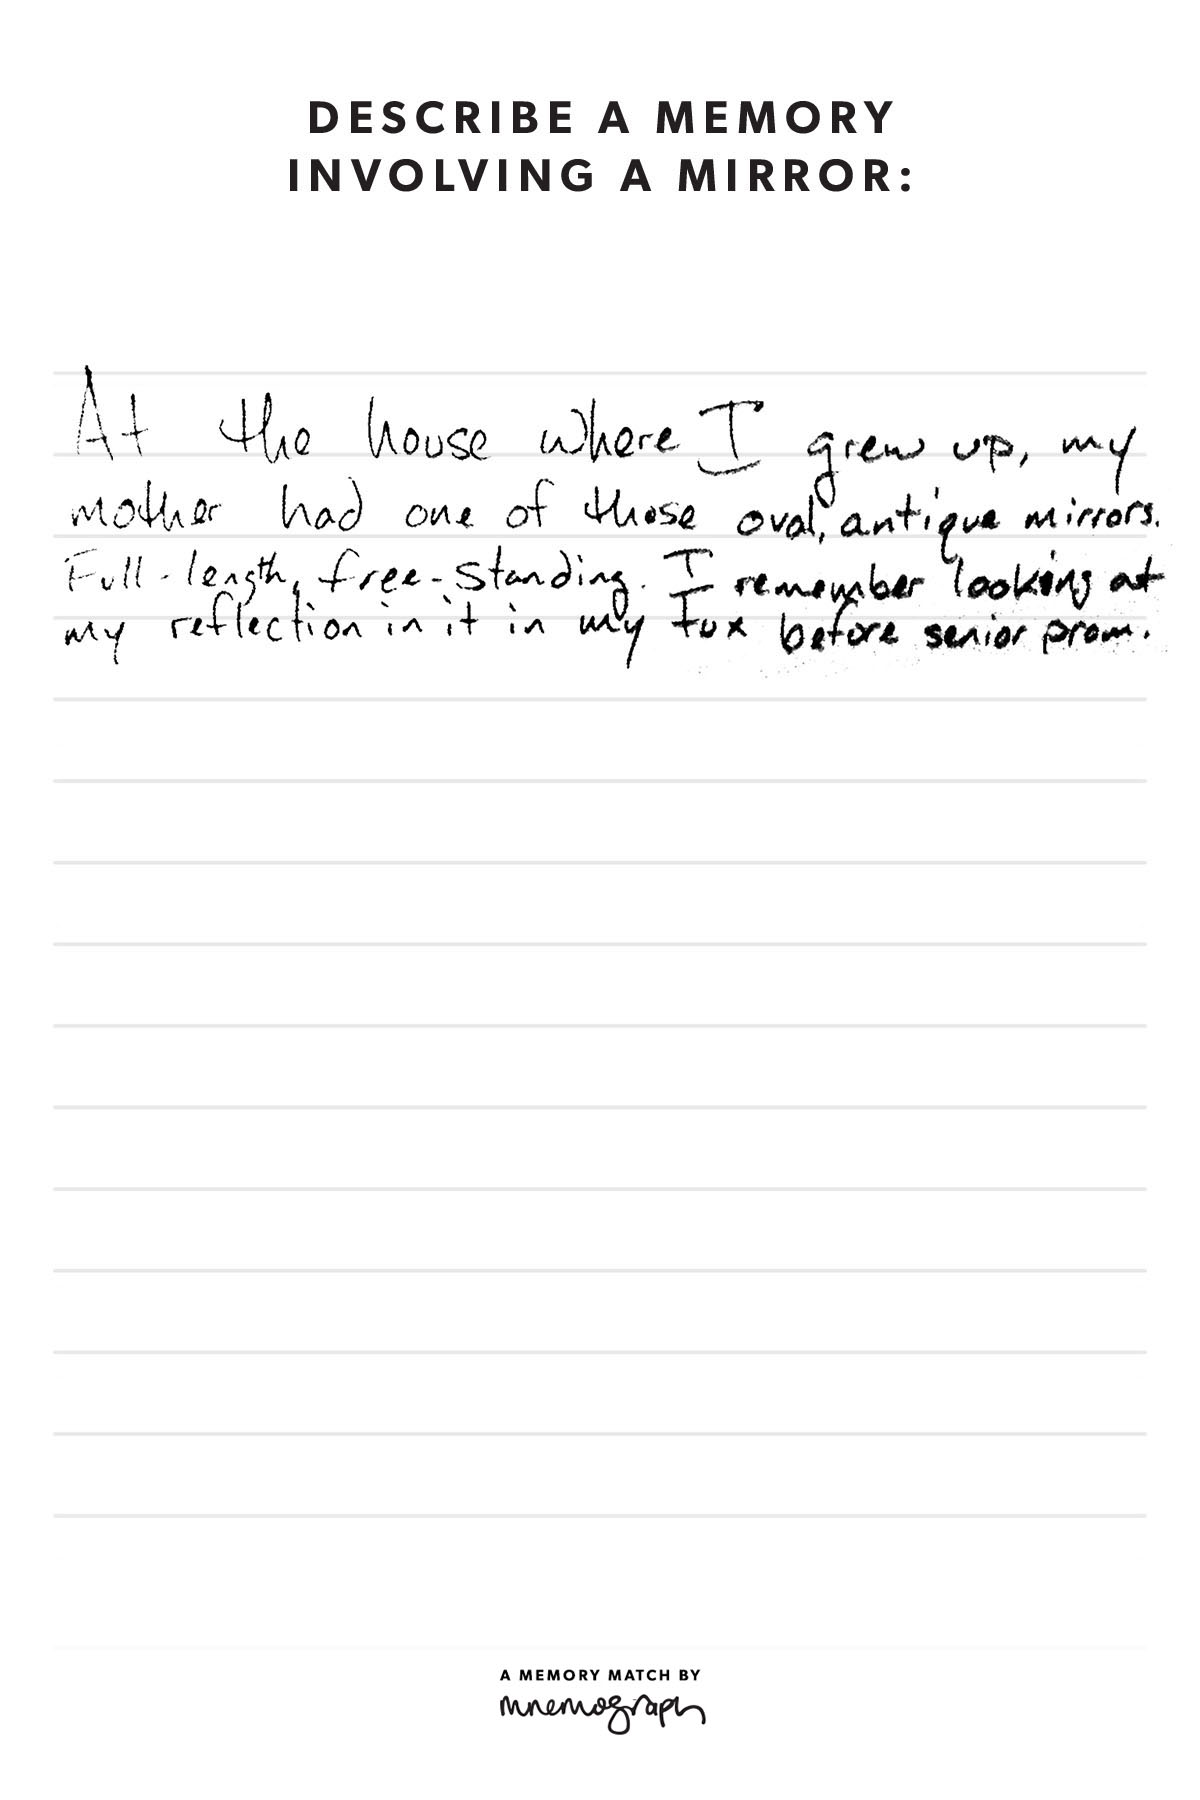 DESCRIBE A MEMORY
INVOLVING A MIRROR:
At the house where I grew up, my
mother had one of those oval, antique mirrors.
Full-length, free-standing. I remember looking at
my reflection in it in my tux before senior prom.
A MEMORY MATCH BY
mnemograph